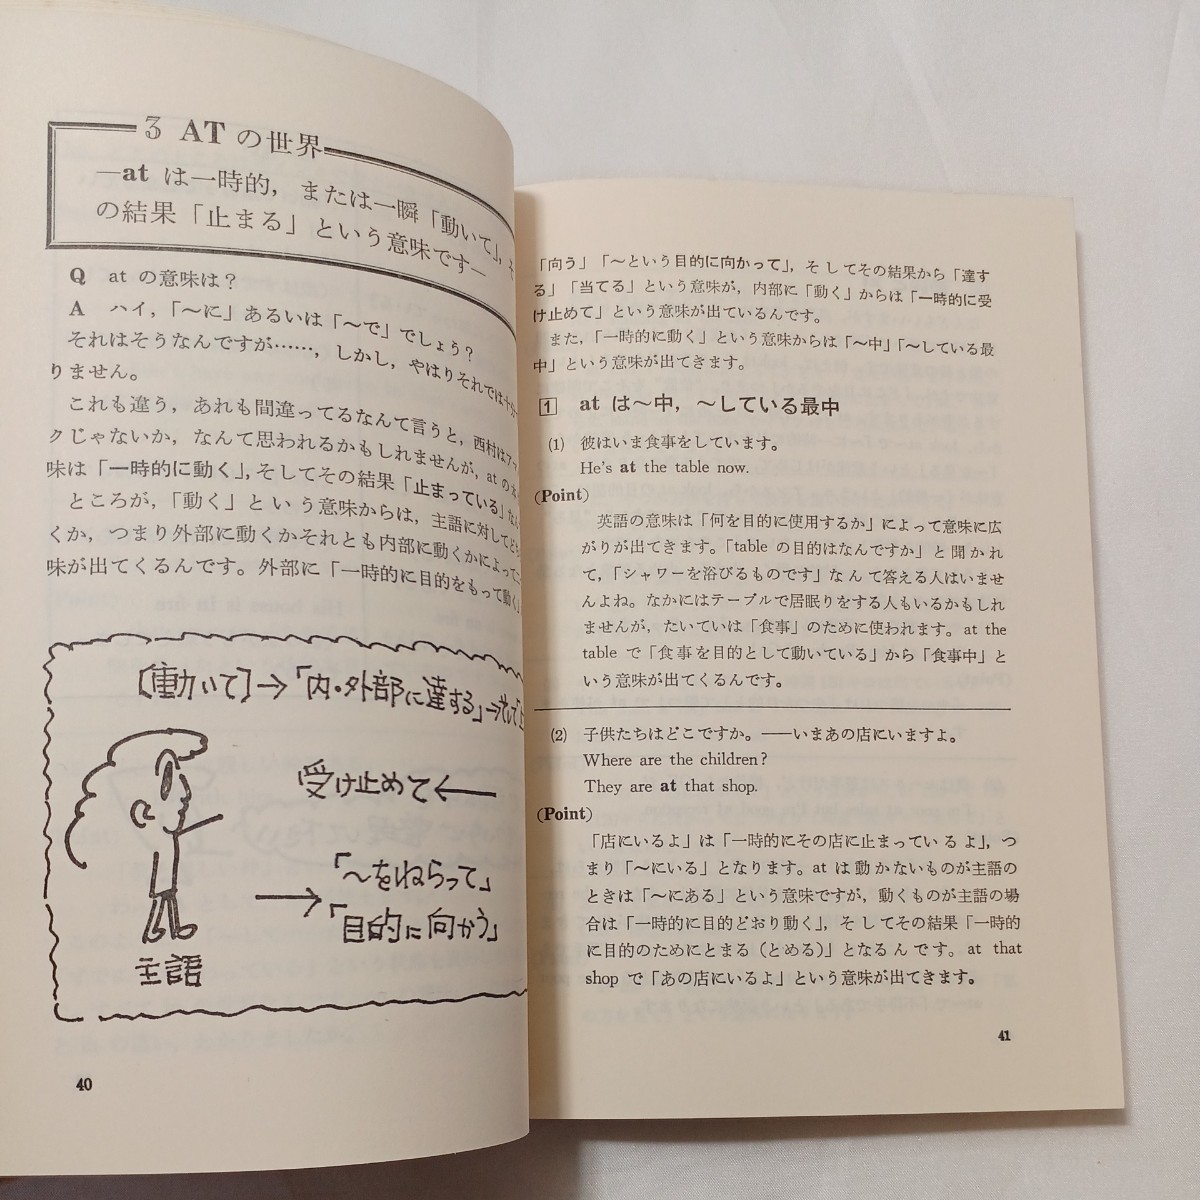 3 AT の世界
—at は一時的，または一瞬「動いて」，そ
の結果「止まる」という意味です—
Q at の意味は？
A ハイ，「〜に」あるいは「〜で」でしょう？
それはそうなんですが……，しかし，やはりそれでは十分
りません。
これも違う，あれも間違ってるなんて言うと，西村はア
クじゃないか，なんて思われるかもしれませんが，at の
味は「一時的に動く」，そしてその結果「止まっている」な
ところが，「動く」という意味からは，主語に対して
くか，つまり外部に動くかそれとも内部に動くかによって
味が出てくるんです。外部に「一時的に目的をもって動く」
〔動いて〕→「内・外部に達する」→そして
受け止めて←
→「〜をねらって」
「目的に向かう」
主語
40
「向う」「〜という目的に向かって」，そしてその結果から「達す
る」「当てる」という意味が，内部に「動く」からは「一時的に受
け止めて」という意味が出ているんです。
また，「一時的に動く」という意味からは「〜中」「〜している最
中」という意味が出てきます。
1 at は〜中，〜している最中
(1) 彼はいま食事をしています。
He's at the table now.
(Point)
英語の意味は「何を目的に使用するか」によって意味に広
がりが出てきます。「table の目的はなんですか」と聞かれ
て，「シャワーを浴びるものです」なんて答える人はいませ
んよね。なかにはテーブルで居眠りをする人もいるかもしれ
ませんが，たいていは「食事」のために使われます。at the
table で「食事を目的として動いている」から「食事中」と
いう意味が出てくるんです。
(2) 子供たちはどこですか。——いまあの店にいますよ。
Where are the children?
They are at that shop.
(Point)
「店にいるよ」は「一時的にその店に止まっているよ」，つ
まり「〜にいる」となります。at は動かないものが主語の
ときは「〜にある」という意味ですが，動くものが主語の場
合は「一時的に目的どおり動く」，そしてその結果「一時的
に目的のためにとまる（とめる）」となるんです。at that
shop で「あの店にいるよ」という意味が出てきます。
41